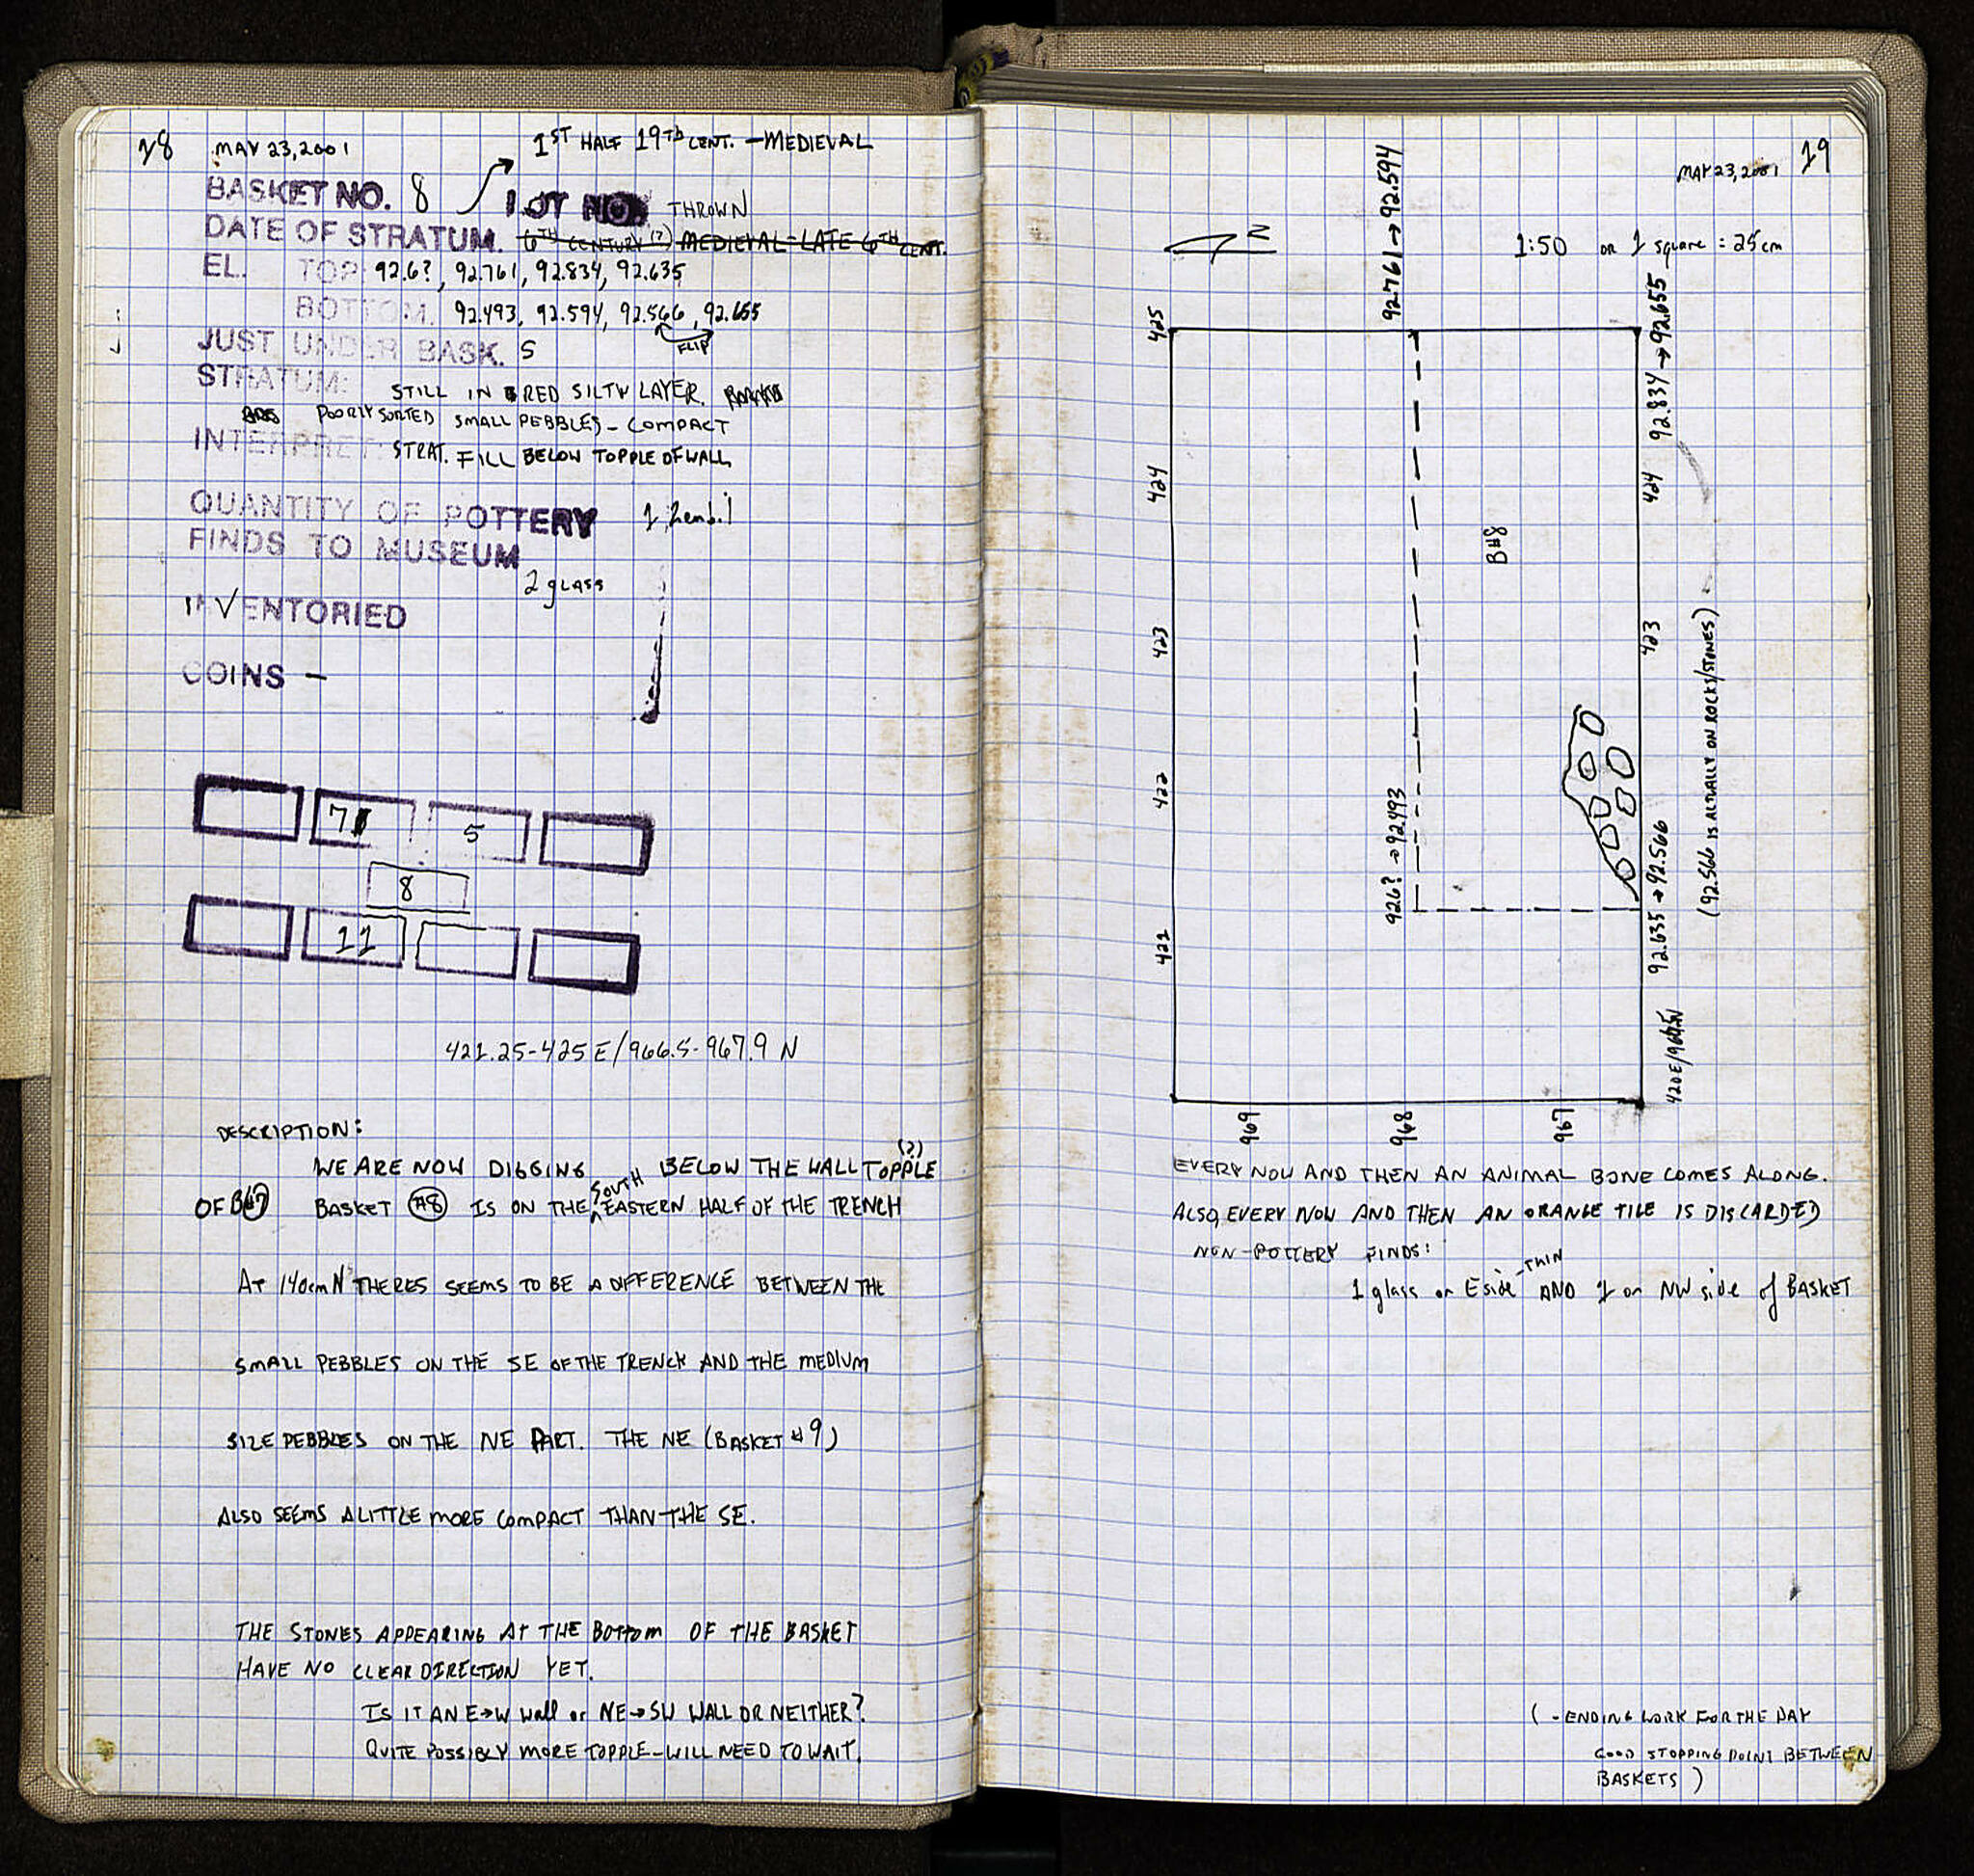 18 MAY 23, 2001 1ST HALF 19TH CENT. - MEDIEVAL
BASKET NO. 8 LOT NO. THROWN
DATE OF STRATUM. 6TH CENTURY (?) MEDIEVAL - LATE 6TH CENT.
EL. TOP 92.6?, 92.761, 92.834, 92.635
BOTTOM. 92.493, 92.594, 92.566, 92.655
FLIP
JUST UNDER BASK. 5
STRATUM: STILL IN RED SILTY LAYER.
POORLY SORTED SMALL PEBBLES - COMPACT
INTERPRET: STRAT. FILL BELOW TOPPLE OF WALL
QUANTITY OF POTTERY 1 zembil
FINDS TO MUSEUM
2 GLASS
INVENTORIED
COINS -
7 5
8
11
421.25-425 E/966.5-967.9 N
DESCRIPTION:
WE ARE NOW DIGGING BELOW THE WALL TOPPLE (?)
OF B#7 BASKET #8 IS ON THE SOUTH EASTERN HALF OF THE TRENCH
AT 140cm N THERES SEEMS TO BE A DIFFERENCE BETWEEN THE
SMALL PEBBLES ON THE SE OF THE TRENCH AND THE MEDIUM
SIZE PEBBLES ON THE NE PART. THE NE (BASKET #9)
ALSO SEEMS A LITTLE MORE COMPACT THAN THE SE.
THE STONES APPEARING AT THE BOTTOM OF THE BASKET
HAVE NO CLEAR DIRECTION YET.
IS IT AN E→W wall or NE→SW WALL OR NEITHER?
QUITE POSSIBLY MORE TOPPLE - WILL NEED TO WAIT.
MAY 23, 2001 19
N
1:50 OR 1 square = 25cm
92.761 → 92.594
92.834 → 92.655
425
424
423
422
421
424
423
B#8
926? → 92.493
92.635 → 92.566
(92.566 IS ACTUALLY ON ROCKS/STONES)
420E/966.5N
969 968 967
EVERY NOW AND THEN AN ANIMAL BONE COMES ALONG.
ALSO, EVERY NOW AND THEN AN ORANGE TILE IS DISCARDED
NON-POTTERY FINDS:
1 glass on E side - THIN AND 1 on NW side of BASKET
( - ENDING WORK FOR THE DAY
GOOD STOPPING POINT BETWEEN
BASKETS )